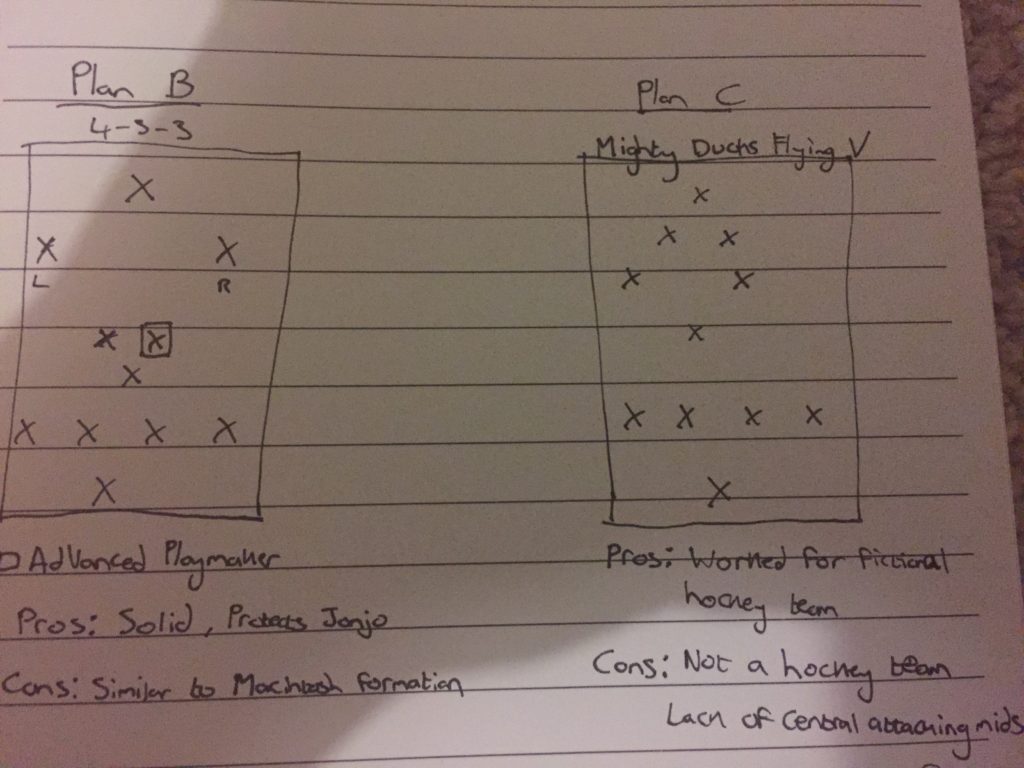 Plan B
4-3-3
X
X X
L R
X X
X
X X X X
X
□ Advanced Playmaker
Pros: Solid, Protects Jonjo
Cons: Similar to Macintosh formation
Plan C
Mighty Ducks Flying V
X
X X
X X
X
X X X X
X
Pros: Worked for fictional
hockey team
Cons: Not a hockey team
Lack of central attacking mids